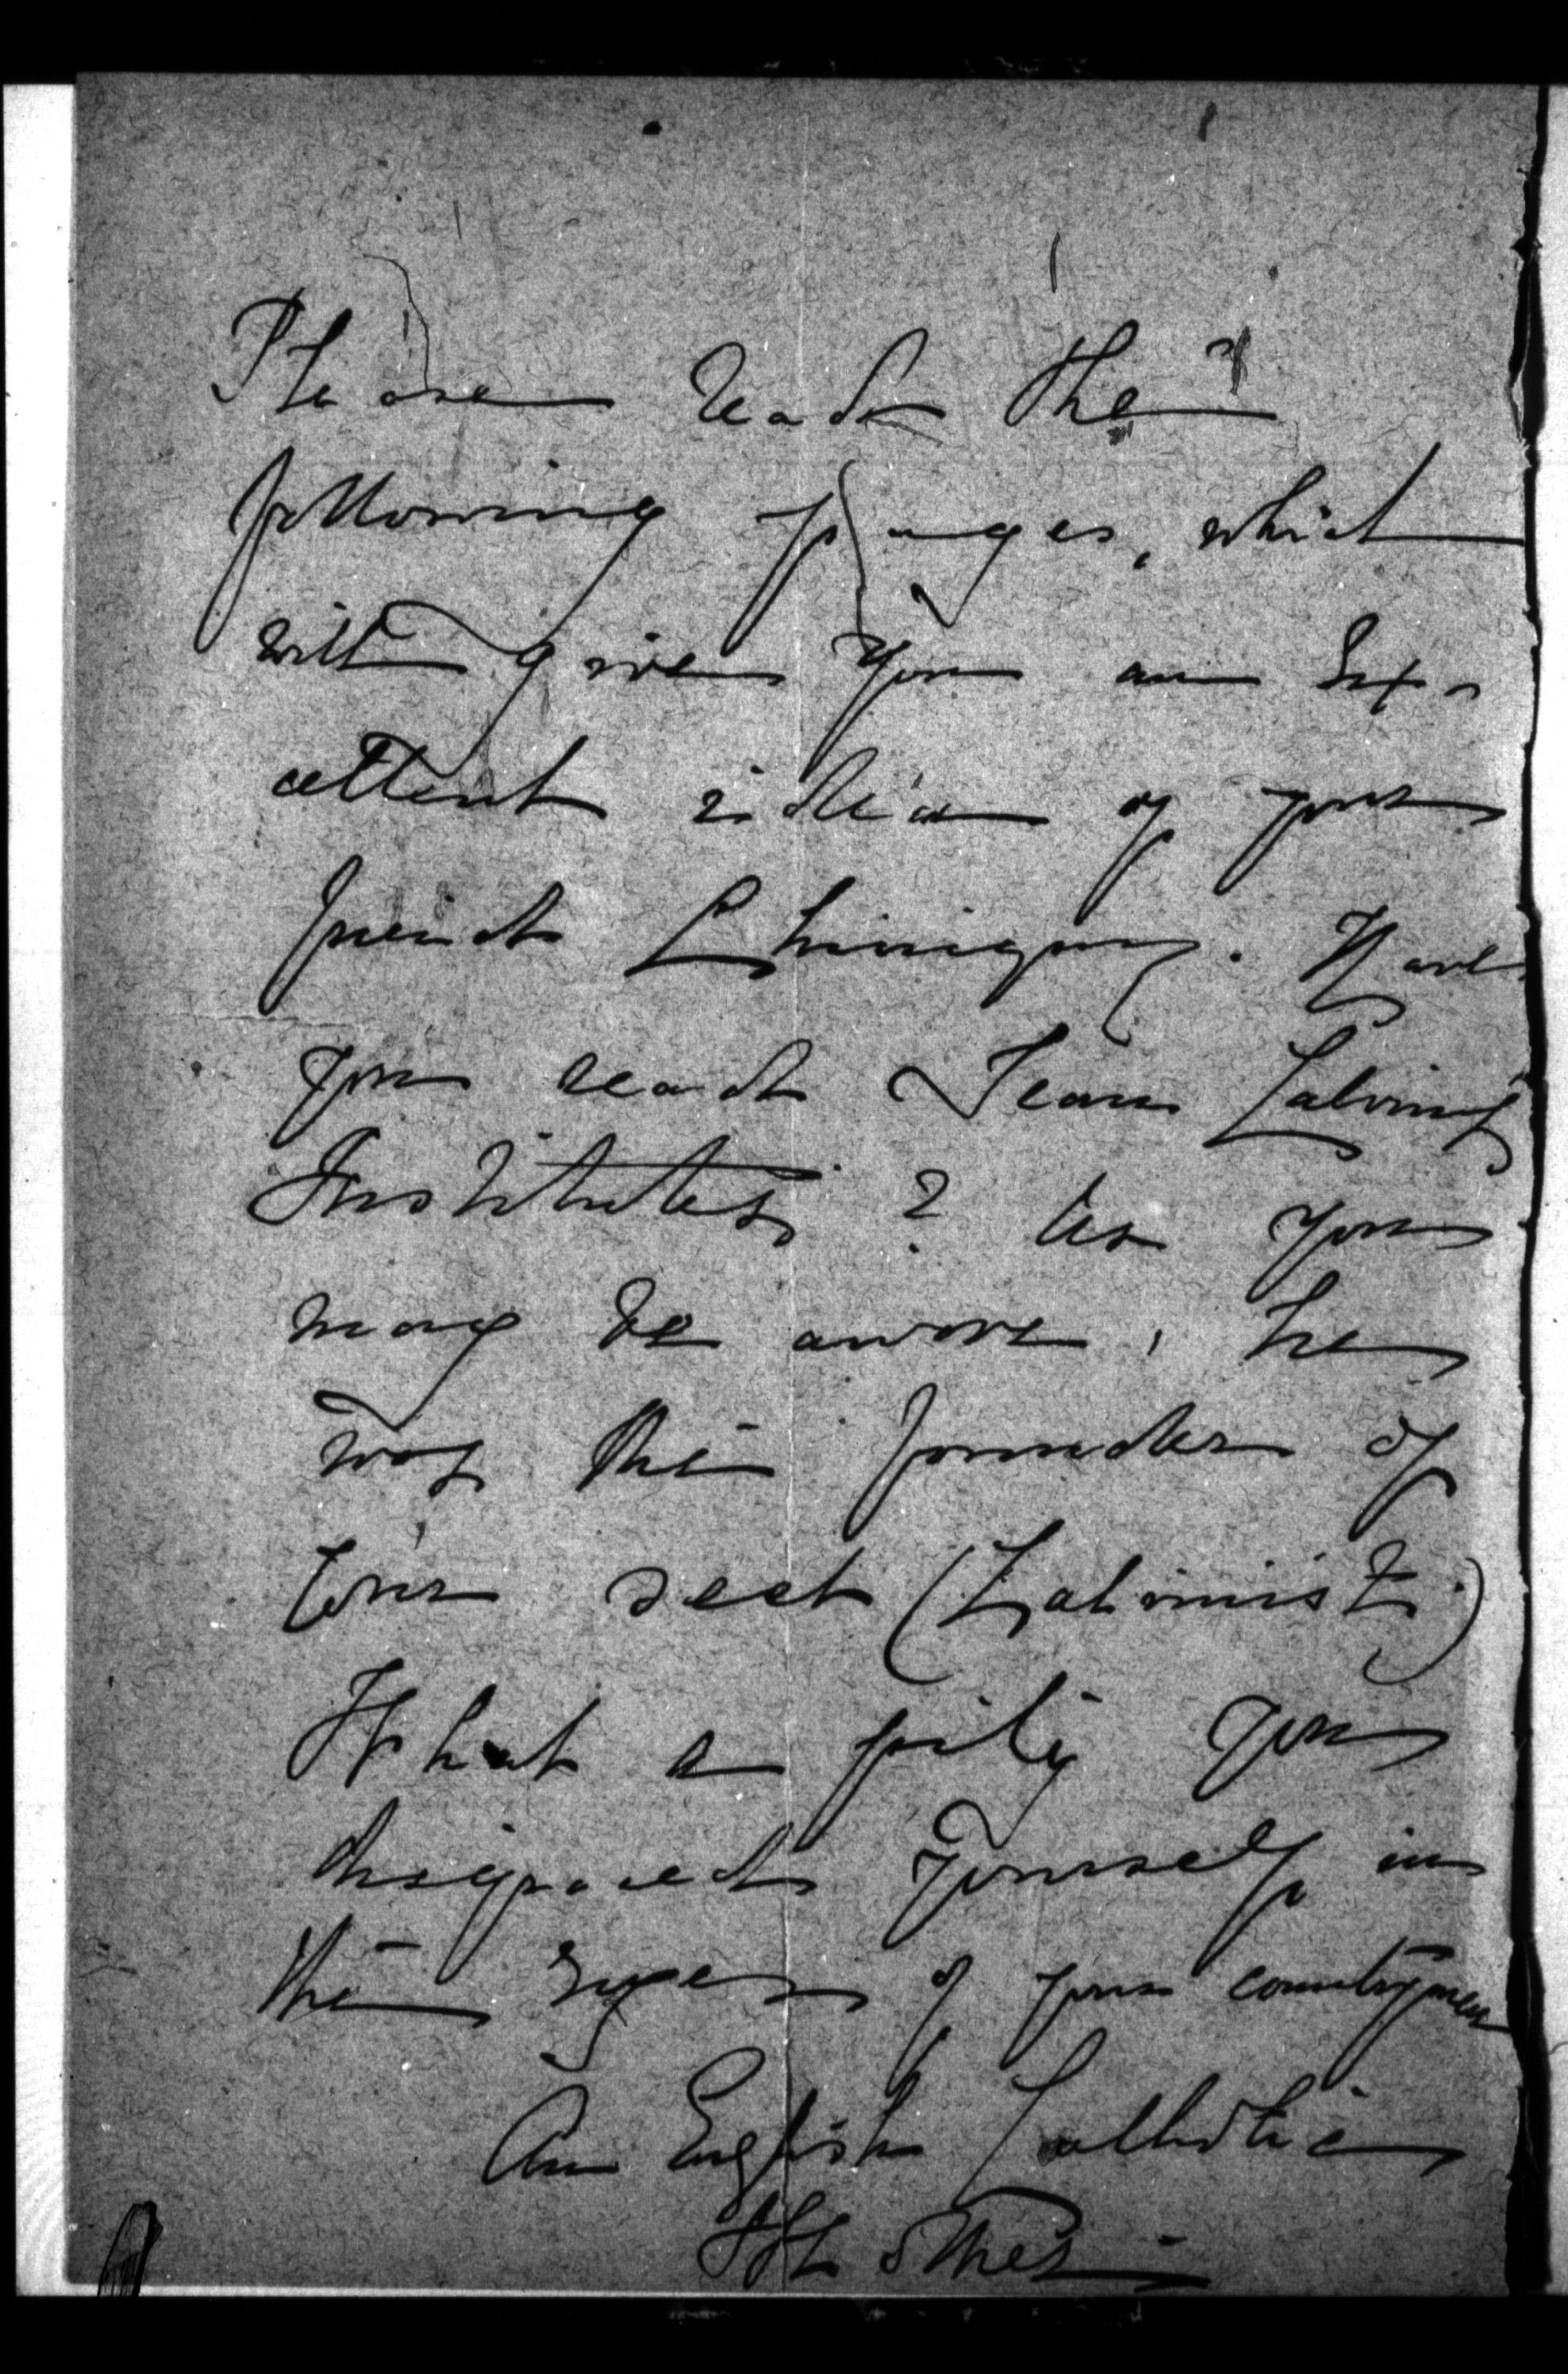 Please read the
following pages, which
will give you an Ex-
cellent idea of your
friend Chiniquy. Have
you read Jean Calvin's
Institutes? As you
may be aware, he
was the founder of
your sect (Calvinist.)
What a pity you
disgraced yourself in
the eyes of your countrymen
An English Catholic